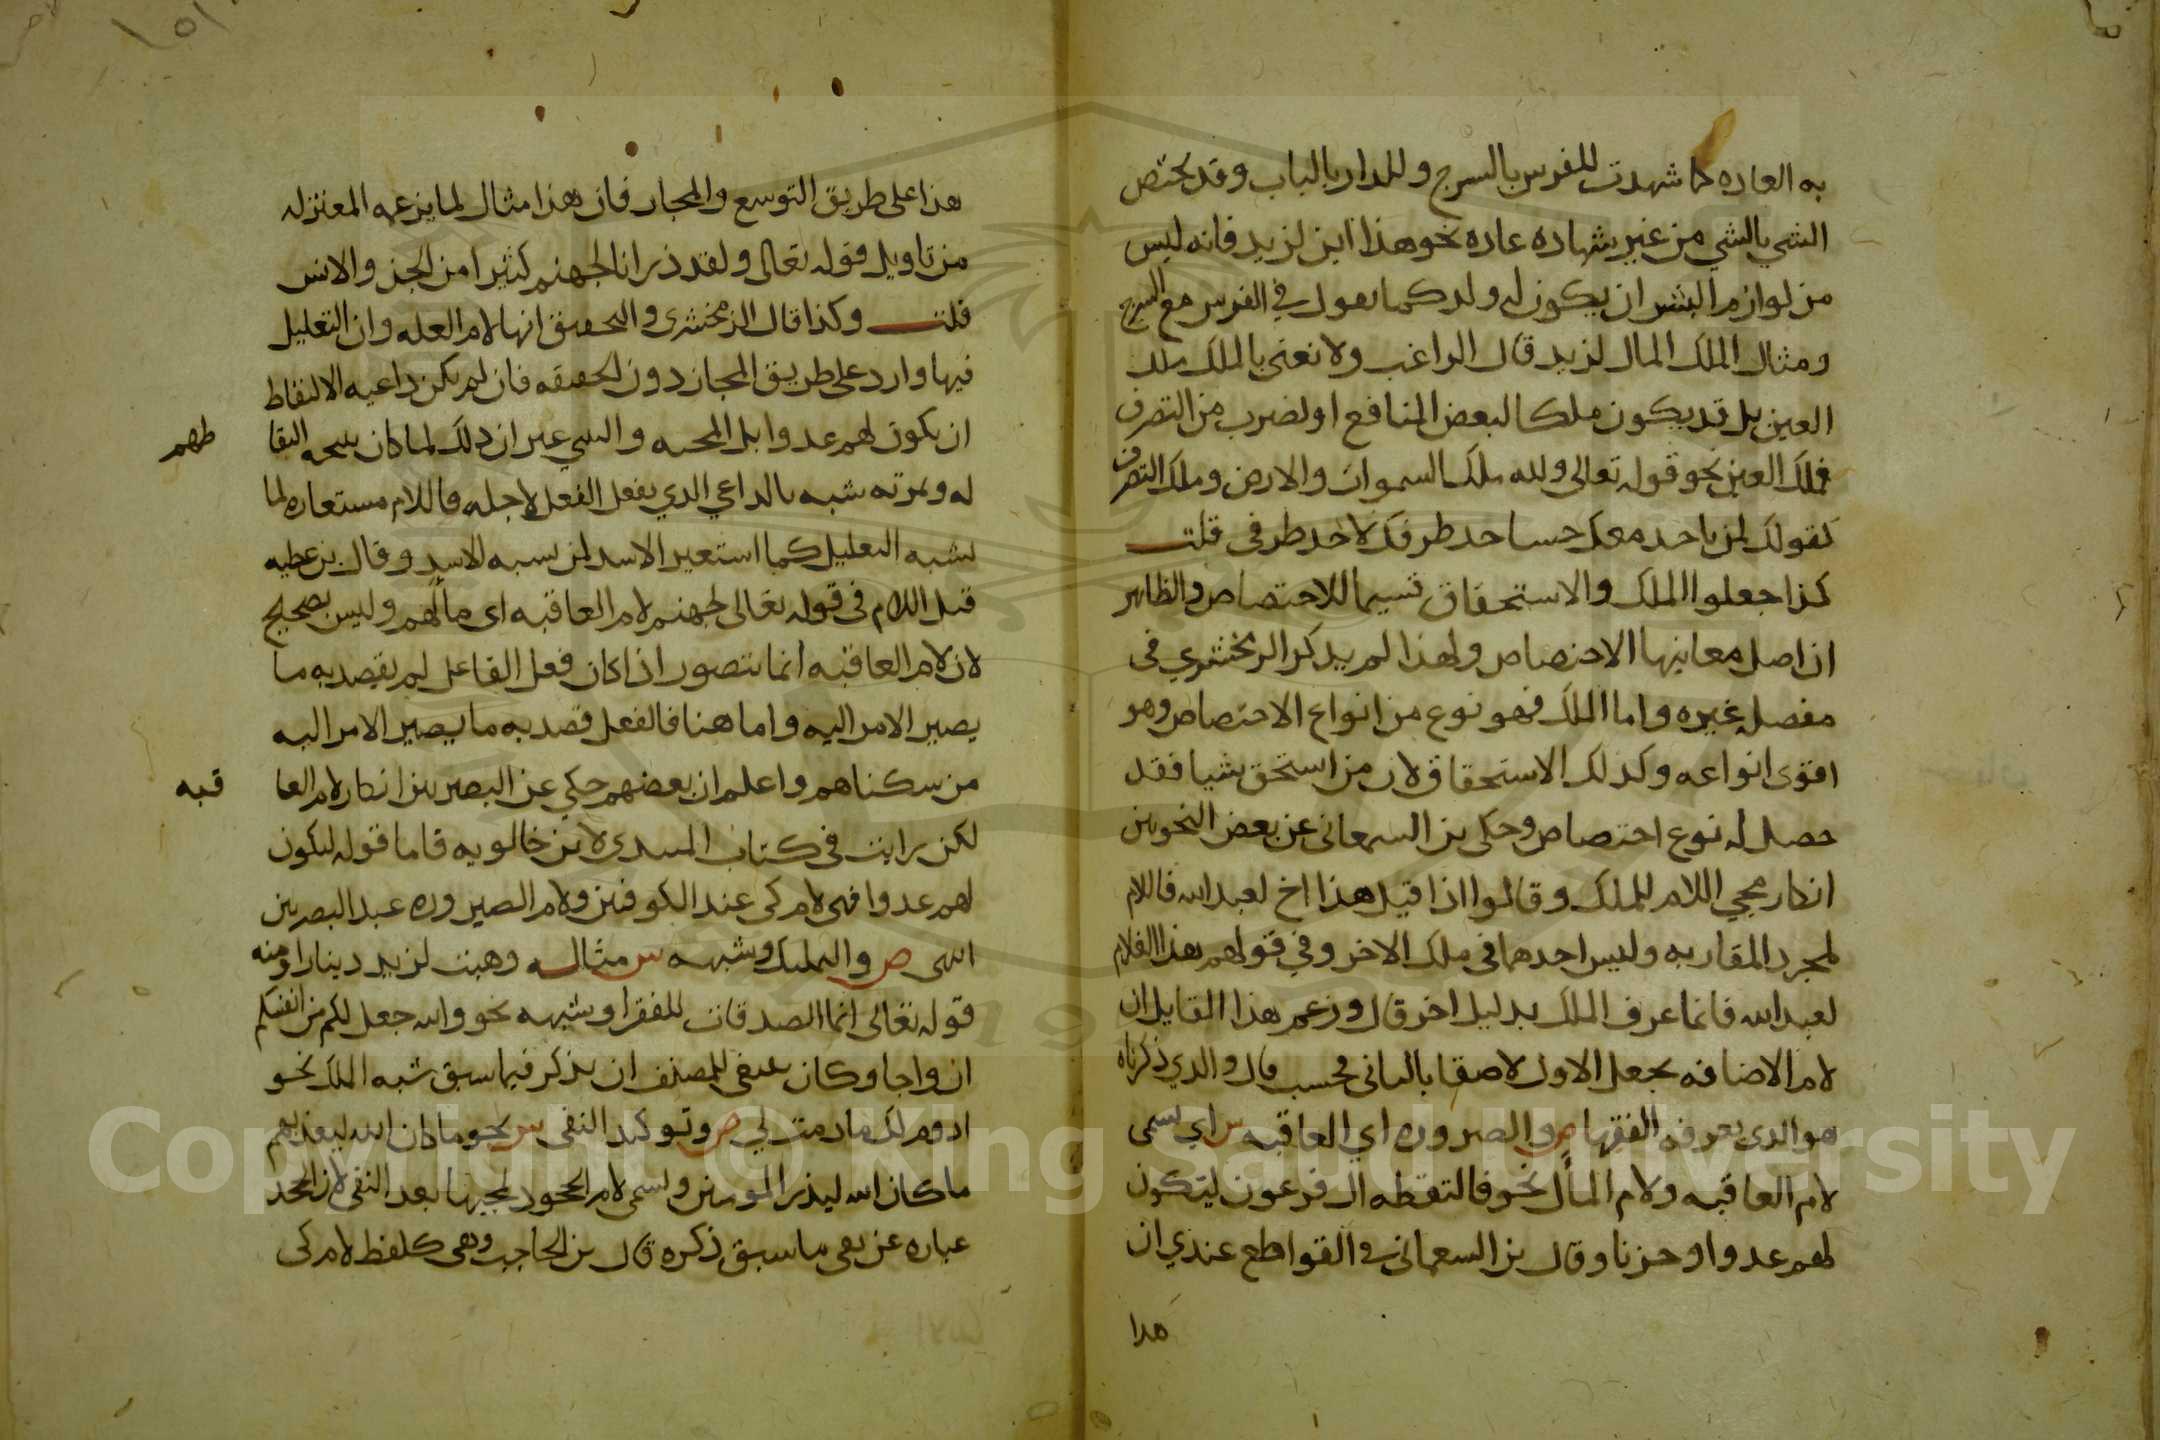 به العاده كما شهدت للفرس بالسرج وللدار بالباب وقد يختص
الشي بالشي من غير شهاده عاده نحو هذا ابن لزيد فانه ليس
من لوازم البشر ان يكون له ولد كما نقول في الفرس مع السرج
ومثال الملك المال لزيد قال الراغب ولا نعني بالملك ملك
العين بل قد يكون ملكا لبعض المنافع او لضرب من التصرف
فملك العين نحو قوله تعالى ولله ملك السموات والارض وملك التصرف
كقولك لمن ياخذ معك خشبا خذ طرفك لاخذ طرفي قلت
كذا جعلوا الملك والاستحقاق قسيما للاختصاص والظاهر
ان اصل معانيها الاختصاص ولهذا لم يذكر الزمخشري في
مفصله غيره واما الملك فهو نوع من انواع الاختصاص وهو
اقوى انواعه وكذلك الاستحقاق لان من استحق شيا فقد
حصل له نوع اختصاص وحكى بن السمعاني عن بعض النحويين
انكار مجي اللام للملك وقالوا اذا قيل هذا اخ لعبد الله فاللام
لمجرد المقاربه وليس احدهما في ملك الاخر وفي قولهم هذا الغلام
لعبد الله فانما عرف الملك بدليل اخر قال وزعم هذا القايل ان
لام الاضافه تجعل الاول لاصقا بالثاني فحسب قال والذي ذكرناه
هو الذي يعرفه الفقها ص والصيروره اي العاقبه س اي تسمى
لام العاقبه ولام المآل نحو فالتقطه ال فرعون ليكون
لهم عدوا وحزنا وقال بن السمعاني في القواطع عندي ان
هذا
هذا على طريق التوسع والمجاز فان هذا مثال لما يزعمه المعتزله
من تاويل قوله تعالى ولقد ذرانا لجهنم كثيرا من الجن والانس
قلت وكذا قال الزمخشري والتحقيق انها لام العله وان التعليل
فيها وارد على طريق المجاز دون الحقيقه فان لم يكن داعيه الالتقاط
ان يكون لهم عدوا بل المحبه والتبني غير ان ذلك لما كان نتيجه التقا طهم
له وثمرته شبه بالداعي الذي يفعل الفعل لاجله فاللام مستعاره لما
يشبه التعليل كما استعير الاسد لمن يشبه الاسد وقال بن عطيه
قيل اللام في قوله تعالى لجهنم لام العاقبه اي مآلهم وليس بصحيح
لان لام العاقبه انما تتصور اذا كان فعل الفاعل لم يقصد به ما
يصير الامر اليه واما هنا فالفعل قصد به ما يصير الامر اليه
من سكناهم واعلم ان بعضهم حكي عن البصريين انكار لام العا قبه
لكن رايت في كتاب المبتدى لابن خالويه فاما قوله ليكون
لهم عدوا فهي لام كي عند الكوفين ولام الصيروره عند البصريين
انتهى ص والتمليك وشبهه س مثاله وهبت لزيد دينارا ومنه
قوله تعالى انما الصدقات للفقرا وشبهه نحو والله جعل لكم من انفسكم
ازواجا وكان ينبغي للمصنف ان يذكر فيما سبق شبه الملك نحو
ادوم لك ما دمت لي ص وتوكيد النفي س نحو ما كان الله ليعذبهم
ما كان الله ليذر المومنين وتسمى لام الجحود لمجيها بعد النفي لان الجحد
عباره عن نفي ما سبق ذكره قال بن الحاجب وهي كلفظ لام كي
Copyright © King Saud University